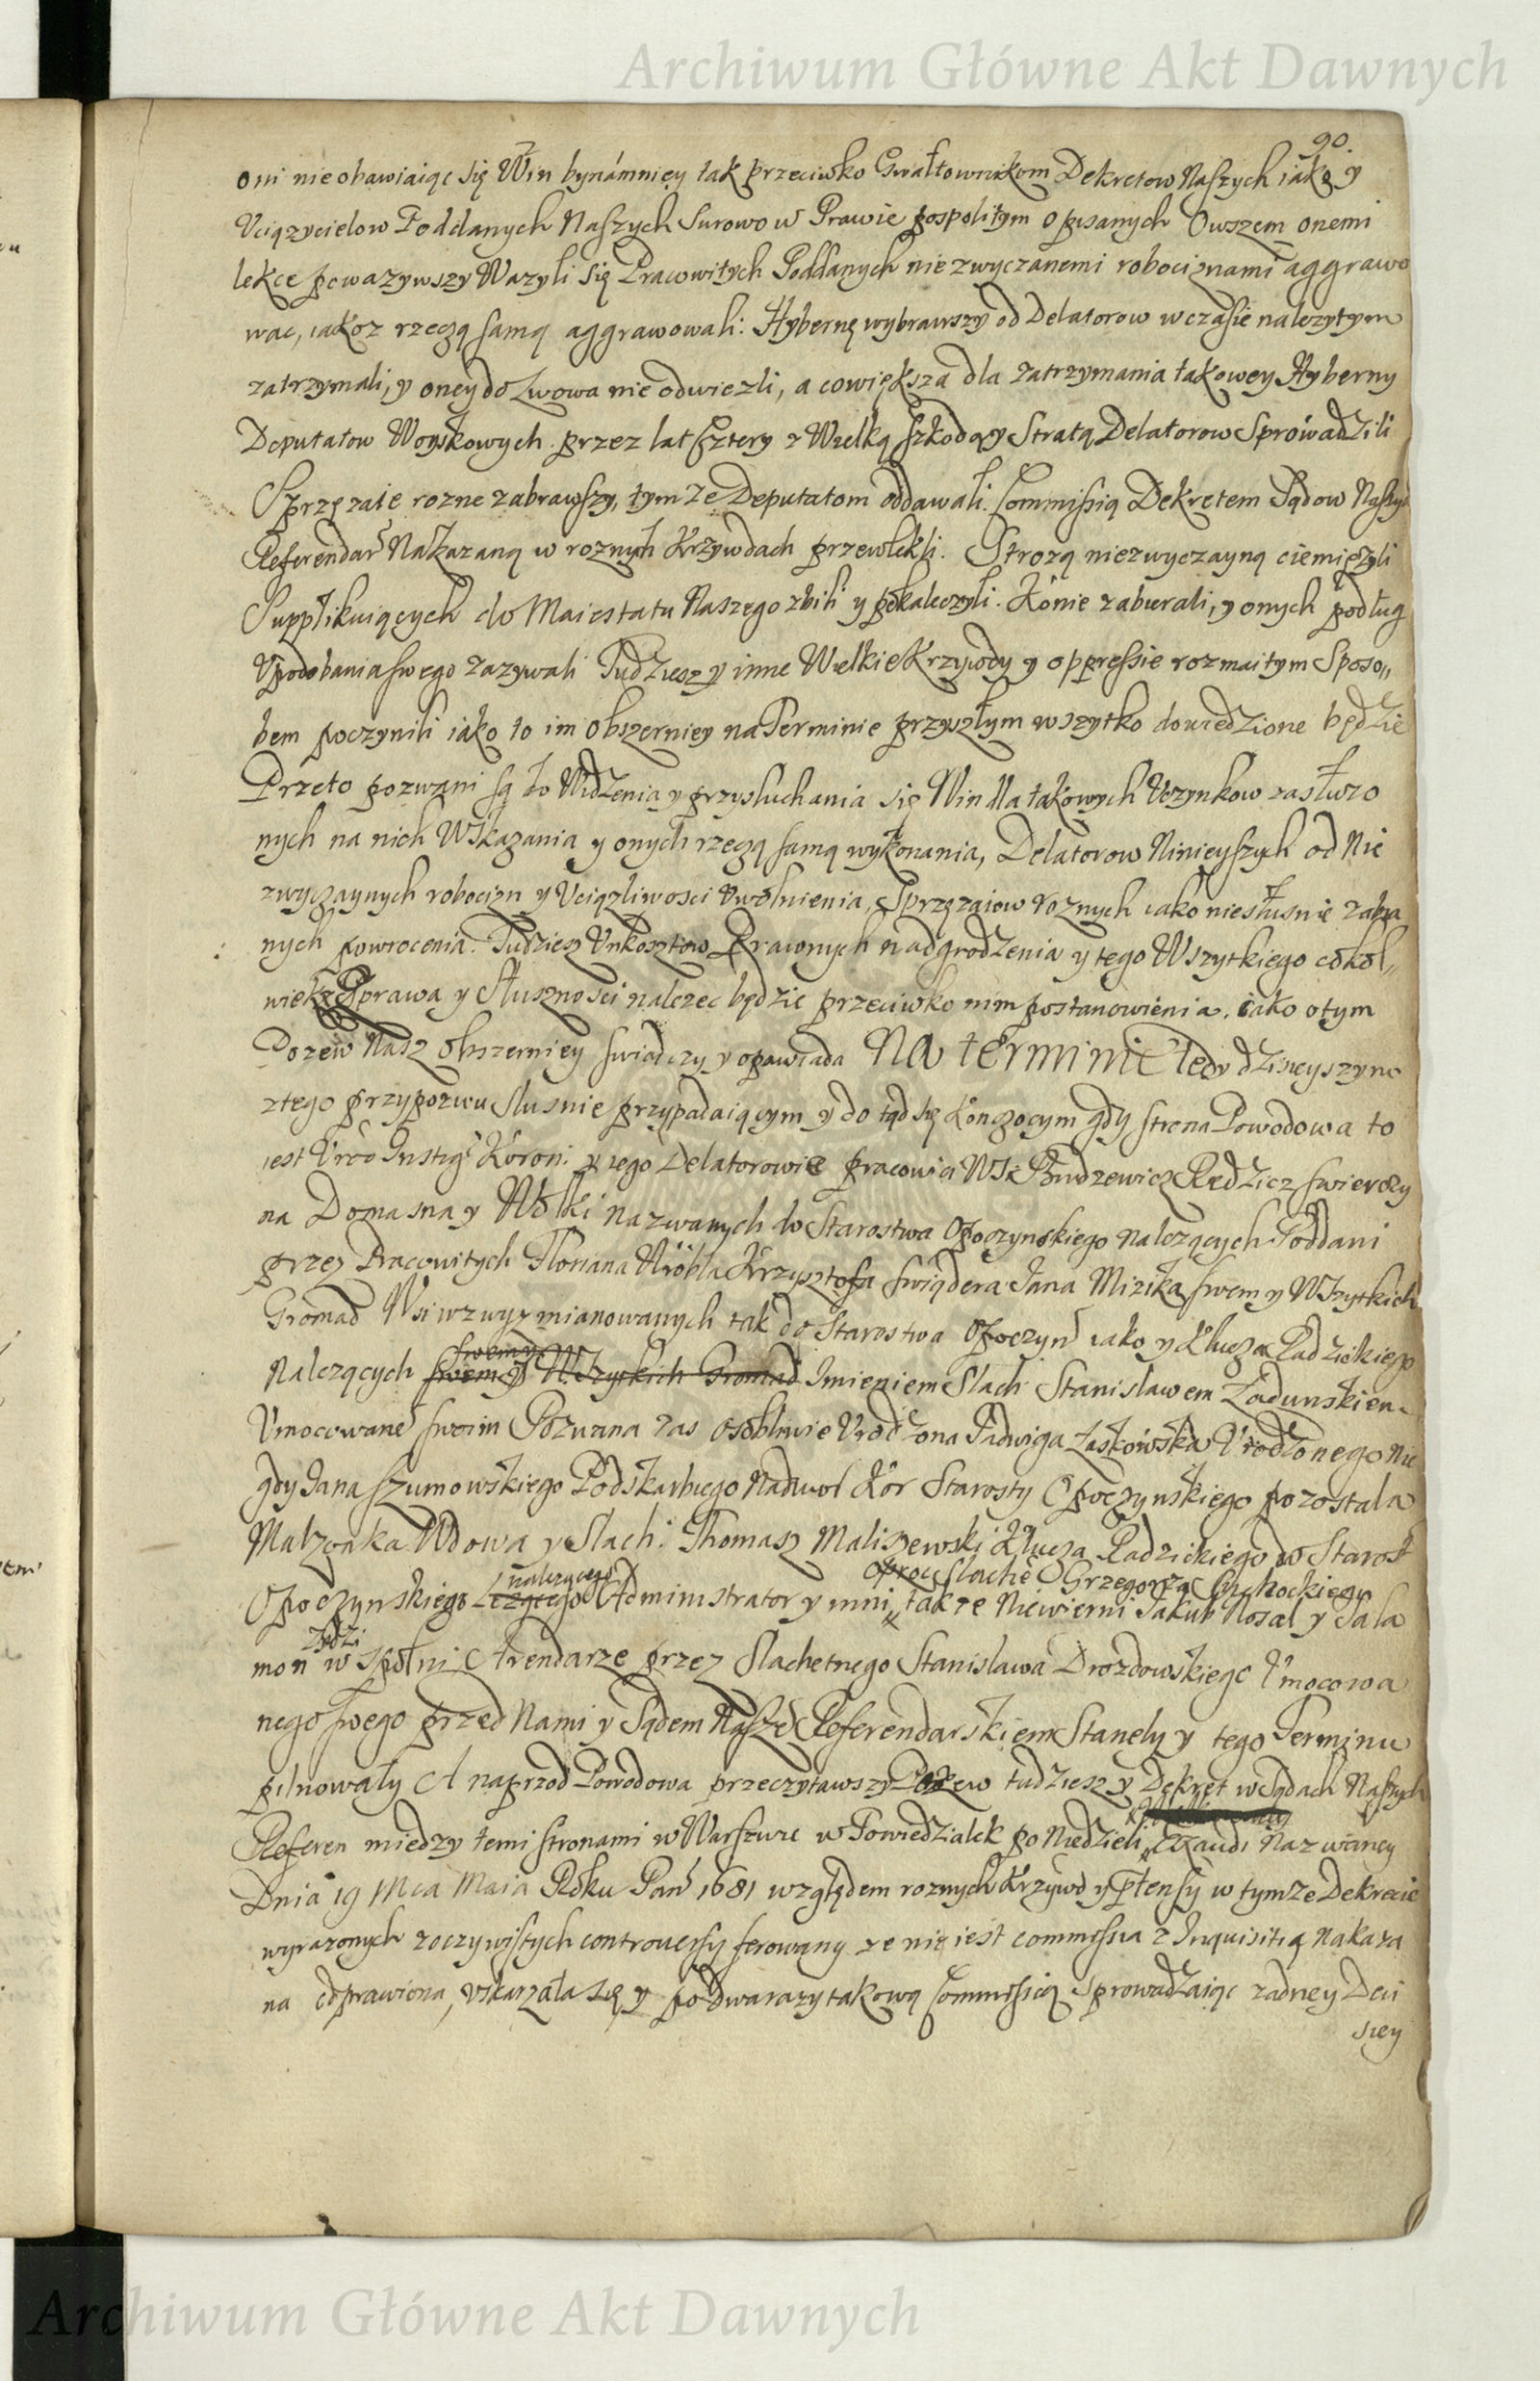 Archiwum Główne Akt Dawnych
90.
oni nieobawiaiąc się Win bynámniey tak przeciwko Gwałtownikom Dekretow Naszych iako y
Vciązycielow Poddanych Naszych Surowo w Prawie pospolitym opisanych Owszem onemi
lekce powazywszy Wazyli się Pracowitych Poddanych niezwyczanemi robociznami aggrawo
wac, iakoz rzeczą samą aggrawowali: Hybernę wybrawszy od Delatorow w czasie nalezytym
zatrzymali, y oney do Lwowa nie odwiezli, a cowiększa dla zatrzymania takowey Hyberny
Deputatow Woyskowych przez lat sztery z Wielką szkodą y Stratą Delatorow Sprowadzili
Sprzęzaie rozne zabrawszy, tymze Deputatom oddawali. Commissią Dekretem Sądow Naszych
Referendar Nakazaną w roznych Krzywdach przewlekli. Strozą niezwyczayną ciemięzyli
Supplikuiących do Maiestatu Naszego zbili y pokaleczyli. Konie zabierali, y onych podług
Vpodobania swego zazywali Tudziesz y inne Wielkie Krzywdy y oppressie rozmaitym Sposo„
bem poczynili iako to im obszerniey na Terminie przyszłym wszytko dowiedzione będzie
Przeto pozwani są do Widzenia y przysłuchania się Win dla takowych Vczynkow zasłuzo
nych na nich Wskazania y onych rzeczą samą wykonania, Delatorow Ninieyszych od Nie
zwyczaynych robocizn y Vciązliwosci Vwolnienia, Sprzęzaiow roznych iako niesłusnie zabra
nych powrocenia. Tudziesz Vnkosztow Prawnych nadgrodzenia y tego Wszytkiego cokol„
wiek z Prawa y Słusznosci nalezec będzie przeciwko nim postanowienia. iako o tym
Pozew Nasz obszerniey swiadczy y opowiada Na terminie tedy dzisieyszym
z tego przypozwu slusnie przypadaiącym y do tąd się konczocym gdy strona Powodowa to
iest Vrod Instig Koron y iego Delatorowie pracowici Wsi Brudzewicz Radzicz Swierczy
na Domasna y Wolki nazwanych do Starostwa Opoczynskiego Nalezących Poddani
przez Pracowitych Floriana Wrobla Krzysztofa Swiądera Jana Mizika swem y Wszytkich
Gromad Wsi wzwyz mianowanych tak do Starostwa Opoczyn iako y Klucza Radzickiego
Nalezących swem y Wszytkich Gromad Imieniem Slach Stanislawem Zadunskiem
Vmocowane swoim Pozwana zas osobliwie Vrodzona Jadwiga Laskowska Vrodzonego nie
gdy Jana Szumowskiego Podskarbiego Nadwor Kor Starosty Opoczynskiego pozostala
Malzonka Wdowa y Slach: Thomasz Maliszewski Klucza Radzickiego do Starost
oprocz Slache Grzegorza Cichockiego
Opoczynskiego nalezącego Administrator y inni, takze Niewierni Jakub Nosal y Sala
mon zydzi wspolni Arendarze przez Slachetnego Stanislawa Drozdowskiego Vmocowa
nego swego przed Nami y Sądem Naszem Referendarskiem Stanely y tego Terminu
pilnowały A naprzod Powodowa przeczytawszy Pozew tudziesz y Dekret w Sądach Naszych
Referen miedzy temi stronami w Warszwie w Poniedzialek po Niedzieli Exaudi Nazwaney
Dnia 19 Mca Maia Roku Pan 1681 względem roznych Krzywd y ptensy w tymze Dekrecie
wyrazonych zoczywistych controuersy ferowany ze nie iest commissia z Inquisitią nakaza
na odprawiona, vskarzała się y po dwa razy takową Commissią Sprowadzaiąc zadney Deci
siey
Archiwum Główne Akt Dawnych